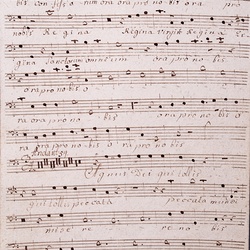 bis confesso - rum ora pro no bis o ra. pro
nobis Re gi na Regina virgi Regina
gina Sanctorum omnium ora pro no - bis
ora pro no - bis o
ra ora pro no - bis
ora pro no bis o ra pro no bis
Andante
Agnus Dei qui tollis
qui tollis peccata peccata mundi
mise re re no - bis